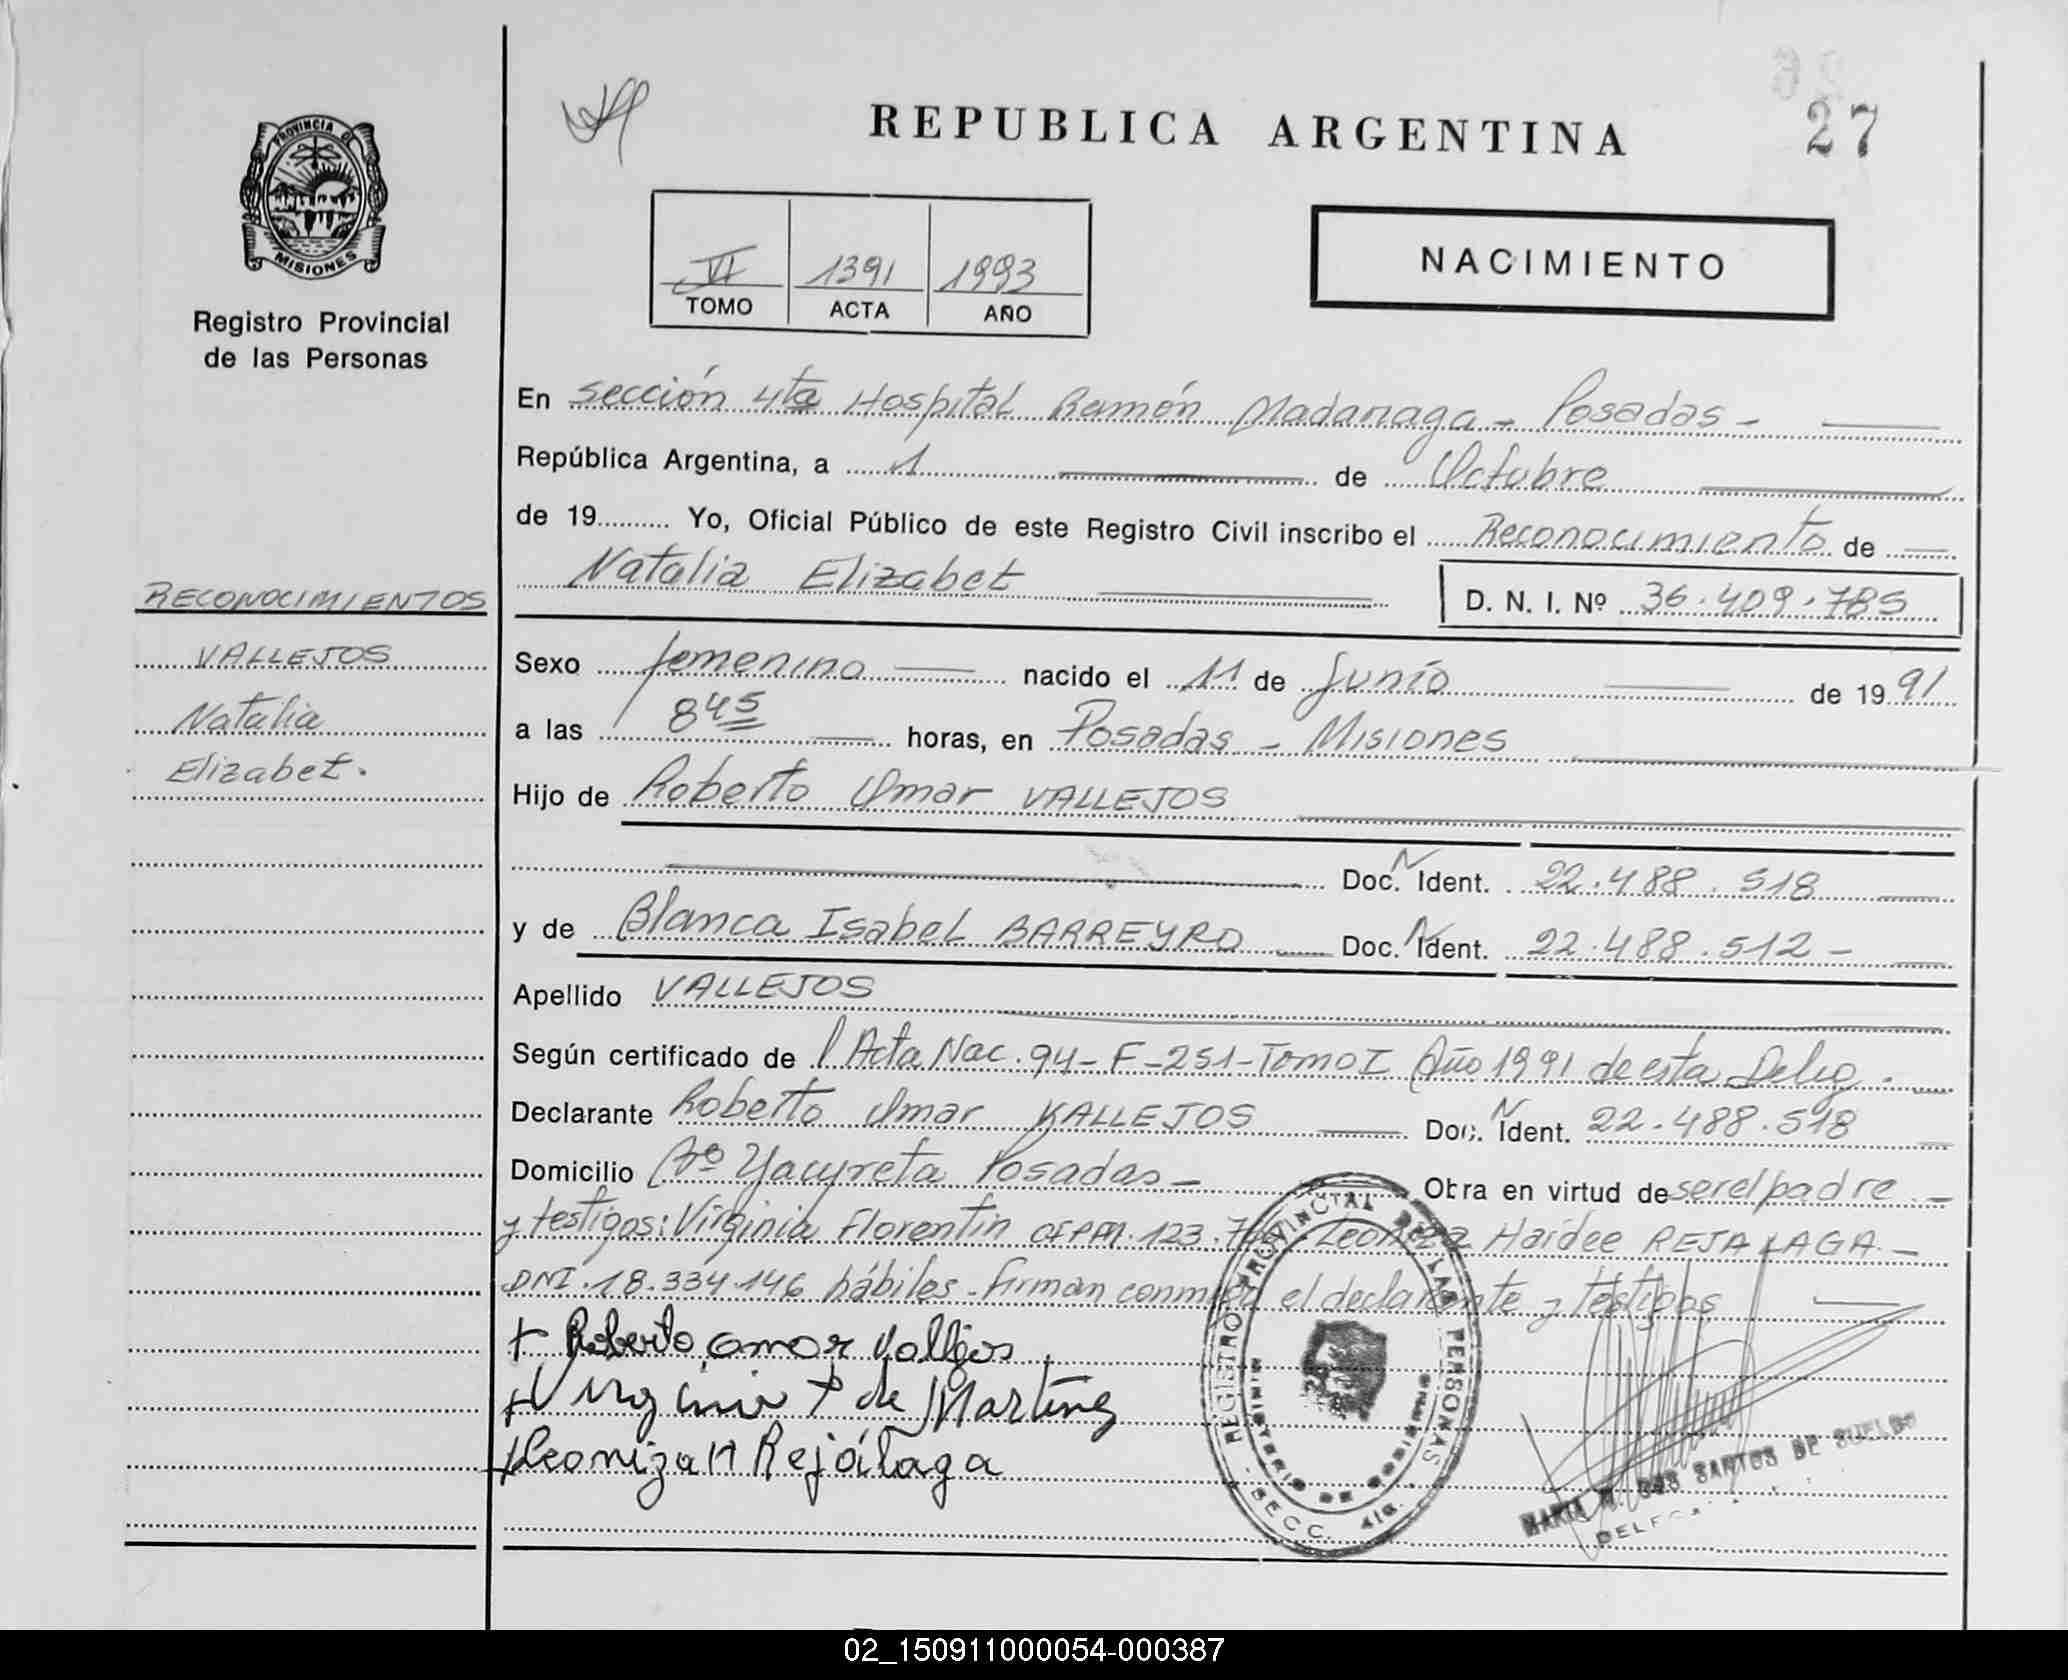 REPUBLICA ARGENTINA
27
PROVINCIA DE
MISIONES
Registro Provincial
de las Personas
VI 1391 1993
TOMO ACTA AÑO
NACIMIENTO
En Sección 4ta Hospital Ramón Madariaga - Posadas -
República Argentina, a 1 de Octubre
de 19 Yo, Oficial Público de este Registro Civil inscribo el Reconocimiento de
Natalia Elizabet D. N. I. Nº 36.409.785
RECONOCIMIENTOS
VALLEJOS
Natalia
Elizabet.
Sexo femenino nacido el 11 de Junio de 1991
a las 8 45 horas, en Posadas - Misiones
Hijo de Roberto Omar VALLEJOS
Doc. N Ident. 22.488.518
y de Blanca Isabel BARREYRO Doc. N Ident. 22.488.512 -
Apellido VALLEJOS
Según certificado de Acta Nac. 94 - F - 251 - Tomo I Año 1991 de esta Deleg.
Declarante Roberto Omar VALLEJOS Doc. N Ident. 22.488.518
Domicilio Bº Yacyreta Posadas - Obra en virtud de ser el padre -
y testigos: Virginia Florentin 123. Haidee REJALAGA -
DNI. 18.334.146 hábiles - firman conmigo el declarante y testigos
+ Roberto omar Vallejos
+ Virginia F de Martinez
+ Leoniza H Rejálaga
REGISTRO PROVINCIAL DE LAS PERSONAS
MINISTERIO DE GOBIERNO
SECC. 4ta.
MARIA DOS SANTOS DE SUELDO
02_150911000054-000387